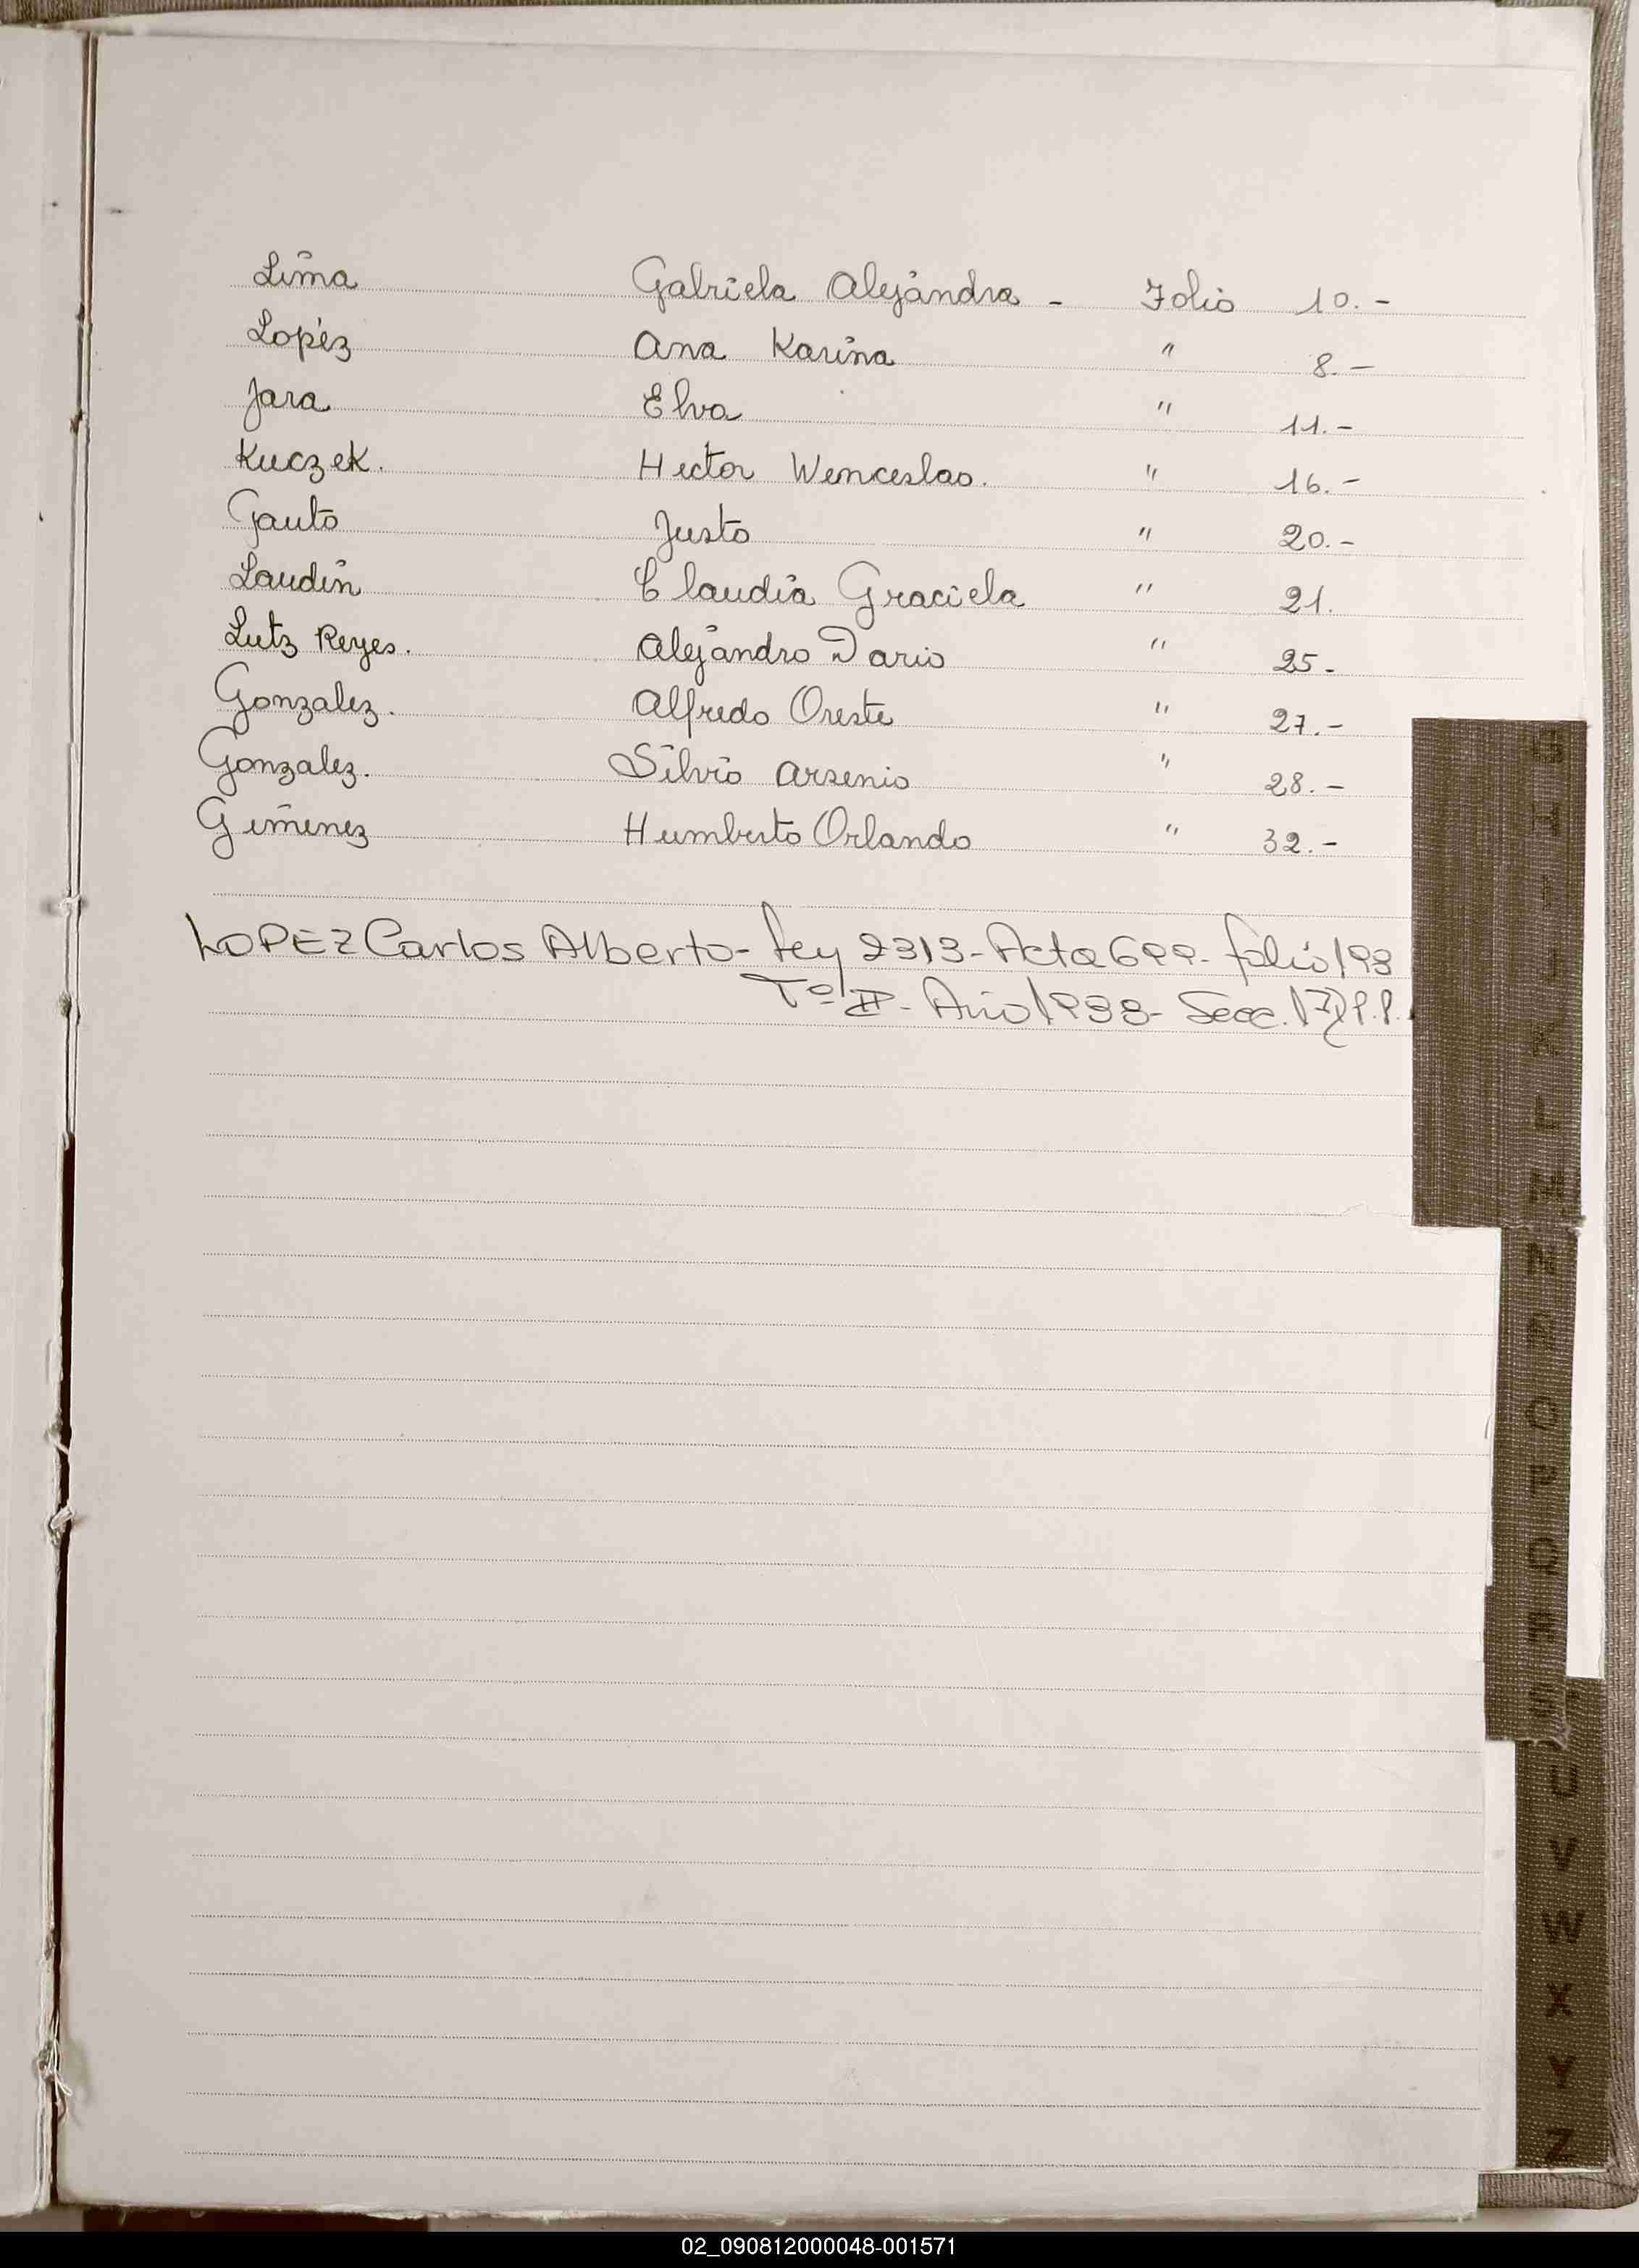 Lima Gabriela Alejandra - Folio 10.-
Lopez Ana Karina " 8.-
Jara Elva " 11.-
Kuczek. Hector Wenceslao. " 16.-
Gauto Justo " 20.-
Laudin Claudia Graciela " 21.
Lutz Reyes. Alejandro Dario " 25-
Gonzalez. Alfredo Oreste " 27.-
Gonzalez. Silvio Arsenio " 28.-
Gimenez Humberto Orlando " 32.-
LOPEZ Carlos Alberto- Ley 2313- Acta 699- folio 193
Tº II- Año 1938- Secc. 17) P.P.
U
V
W
X
Y
Z
02_090812000048-001571